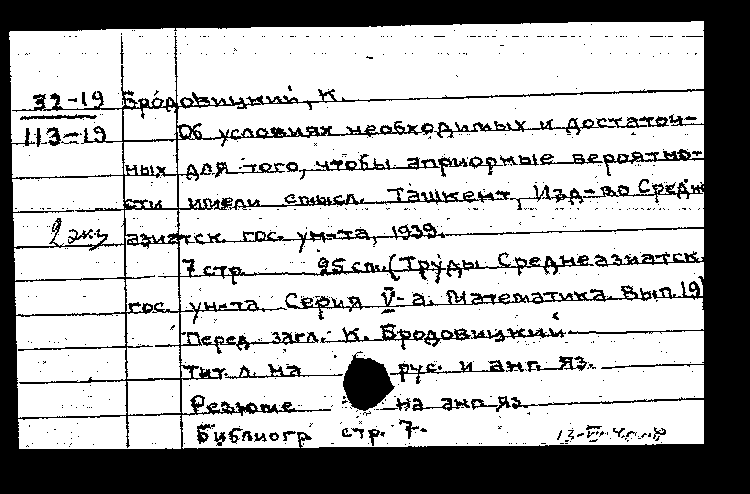 32-19 Бродовицкий, К.
113-19 Об условиях необходимых и достаточ-
ных для того, чтобы априорные вероятно-
сти имели смысл. Ташкент, Изд-во Средн
2 экз азиатск. гос. ун-та, 1939.
7 стр. 25 см. (Труды Среднеазиатск.
гос. ун-та. Серия V-а. Математика. Вып. 19)
Перед загл.: К. Бродовицкий
Тит. л. на рус. и анг. яз.
Резюме на анг. яз.
Библиогр стр. 7.